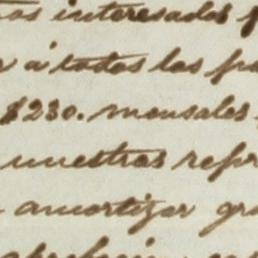 os interesados
á todos los
$230. mensuales
nuestros repr
amortizar gra